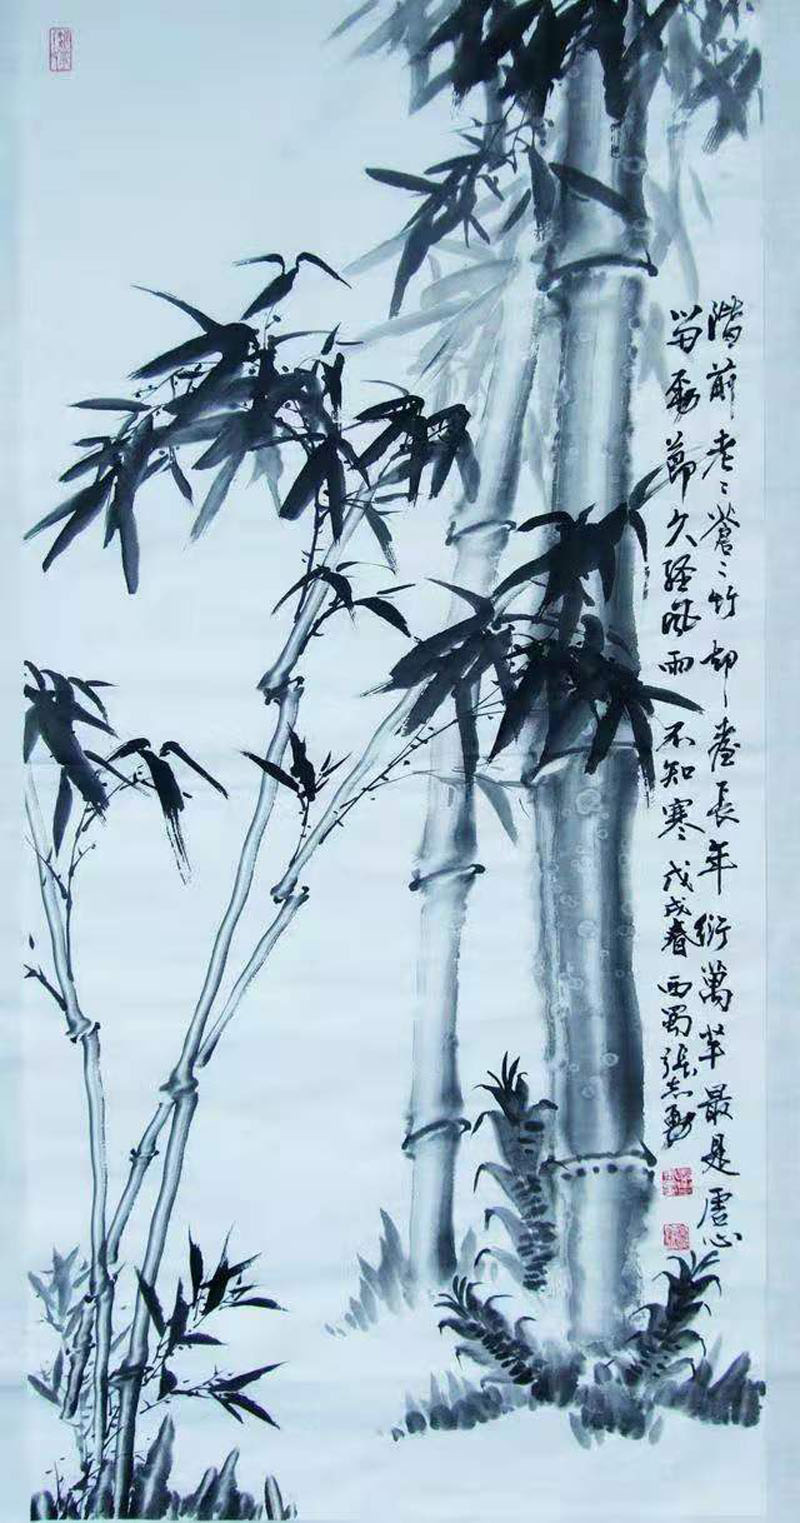 階前老〻蒼〻竹却喜長年衍萬竿最是虛心
留勁節久經風雨不知寒 戊戌春 西蜀張志